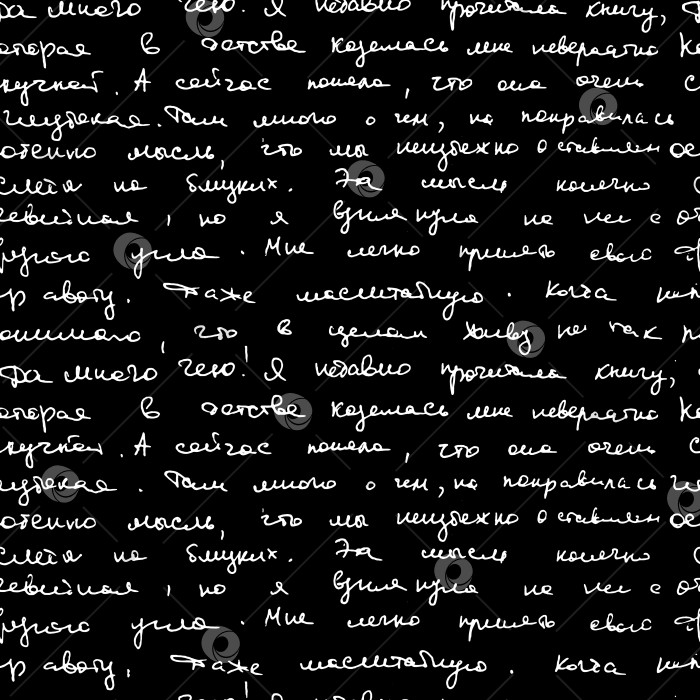 Да много чего! Я недавно прочитала книгу,
оторая в детстве казалась мне невероятно
кучной. А сейчас поняла, что она очень с
глубокая. Там много о чем, но понравилась
мысль, что мы неизбежно оставляем
на близких. Эта мысль конечно
, но я взглянула на нее с
другого угла. Мне легко принять свою
р авоту. Даже масштабную. Когда
понимаю, что в целом живу не так
Да много чего! Я недавно прочитала книгу,
оторая в детстве казалась мне невероятно
кучной. А сейчас поняла, что она очень с
глубокая. Там много о чем, но понравилась
мысль, что мы неизбежно оставляем
на близких. Эта мысль конечно
, но я взглянула на нее с
другого угла. Мне легко принять свою
р авоту. Даже масштабную. Когда